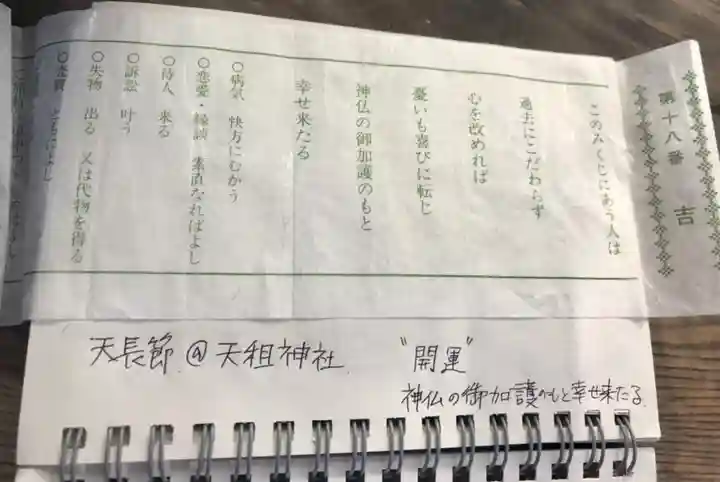 第十八番 吉
このみくじにあう人は
過去にこだわらず
心を改めれば
憂いも喜びに転じ
神仏の御加護のもと
幸せ来たる
○病気 快方にむかう
○恋愛・縁談 素直なればよし
○待人 来る
○訴訟 叶う
○失物 出る 又は代物を得る
○売買 ともによし
天長節@天祖神社 "開運"
神仏の御加護のもと幸せ来たる